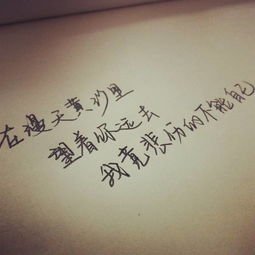 在漫天黄沙里
望着你远去
我竟悲伤的不能自已